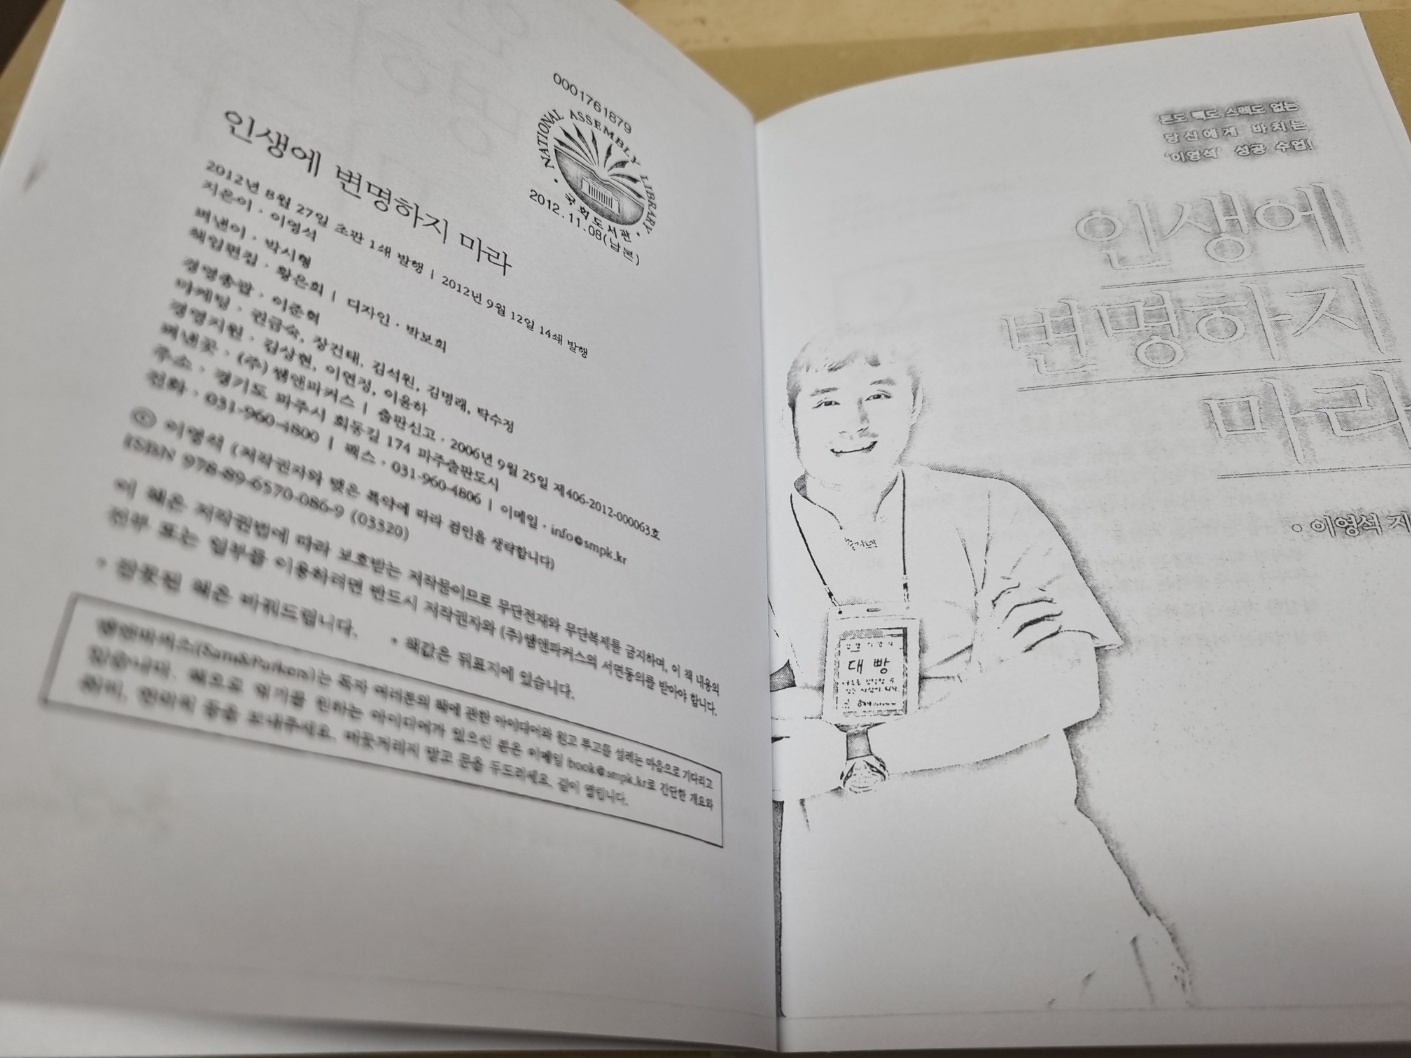 0001761879
NATIONAL ASSEMBLY LIBRARY
국회도서관
2012.11.08(납본)
인생에 변명하지 마라
2012년 8월 27일 초판 1쇄 발행 | 2012년 9월 12일 14쇄 발행
지은이 · 이영석
펴낸이 · 박시형
책임편집 · 황은희 | 디자인 · 박보희
경영총괄 · 이준혁
마케팅 · 권금숙, 장건태, 김석원, 김명래, 탁수정
경영지원 · 김상현, 이연정, 이윤하
펴낸곳 · (주) 쌤앤파커스 | 출판신고 · 2006년 9월 25일 제406-2012-000063호
주소 · 경기도 파주시 회동길 174 파주출판도시
전화 · 031-960-4800 | 팩스 · 031-960-4806 | 이메일 · info@smpk.kr
ⓒ 이영석 (저작권자와 맺은 특약에 따라 검인을 생략합니다)
ISBN 978-89-6570-086-9 (03320)
이 책은 저작권법에 따라 보호받는 저작물이므로 무단전재와 무단복제를 금지하며, 이 책 내용의
전부 또는 일부를 이용하려면 반드시 저작권자와 (주)쌤앤파커스의 서면동의를 받아야 합니다.
• 잘못된 책은 바꿔드립니다. • 책값은 뒤표지에 있습니다.
쌤앤파커스(Sam&Parkers)는 독자 여러분의 책에 관한 아이디어와 원고 투고를 설레는 마음으로 기다리고
있습니다. 책으로 엮기를 원하는 아이디어가 있으신 분은 이메일 book@smpk.kr로 간단한 개요와
취지, 연락처 등을 보내주세요. 머뭇거리지 말고 문을 두드리세요. 길이 열립니다.
돈도 빽도 스펙도 없는
당신에게 바치는
'이영석' 성공 수업!
인생에
변명하지
마라
• 이영석 지
대빵